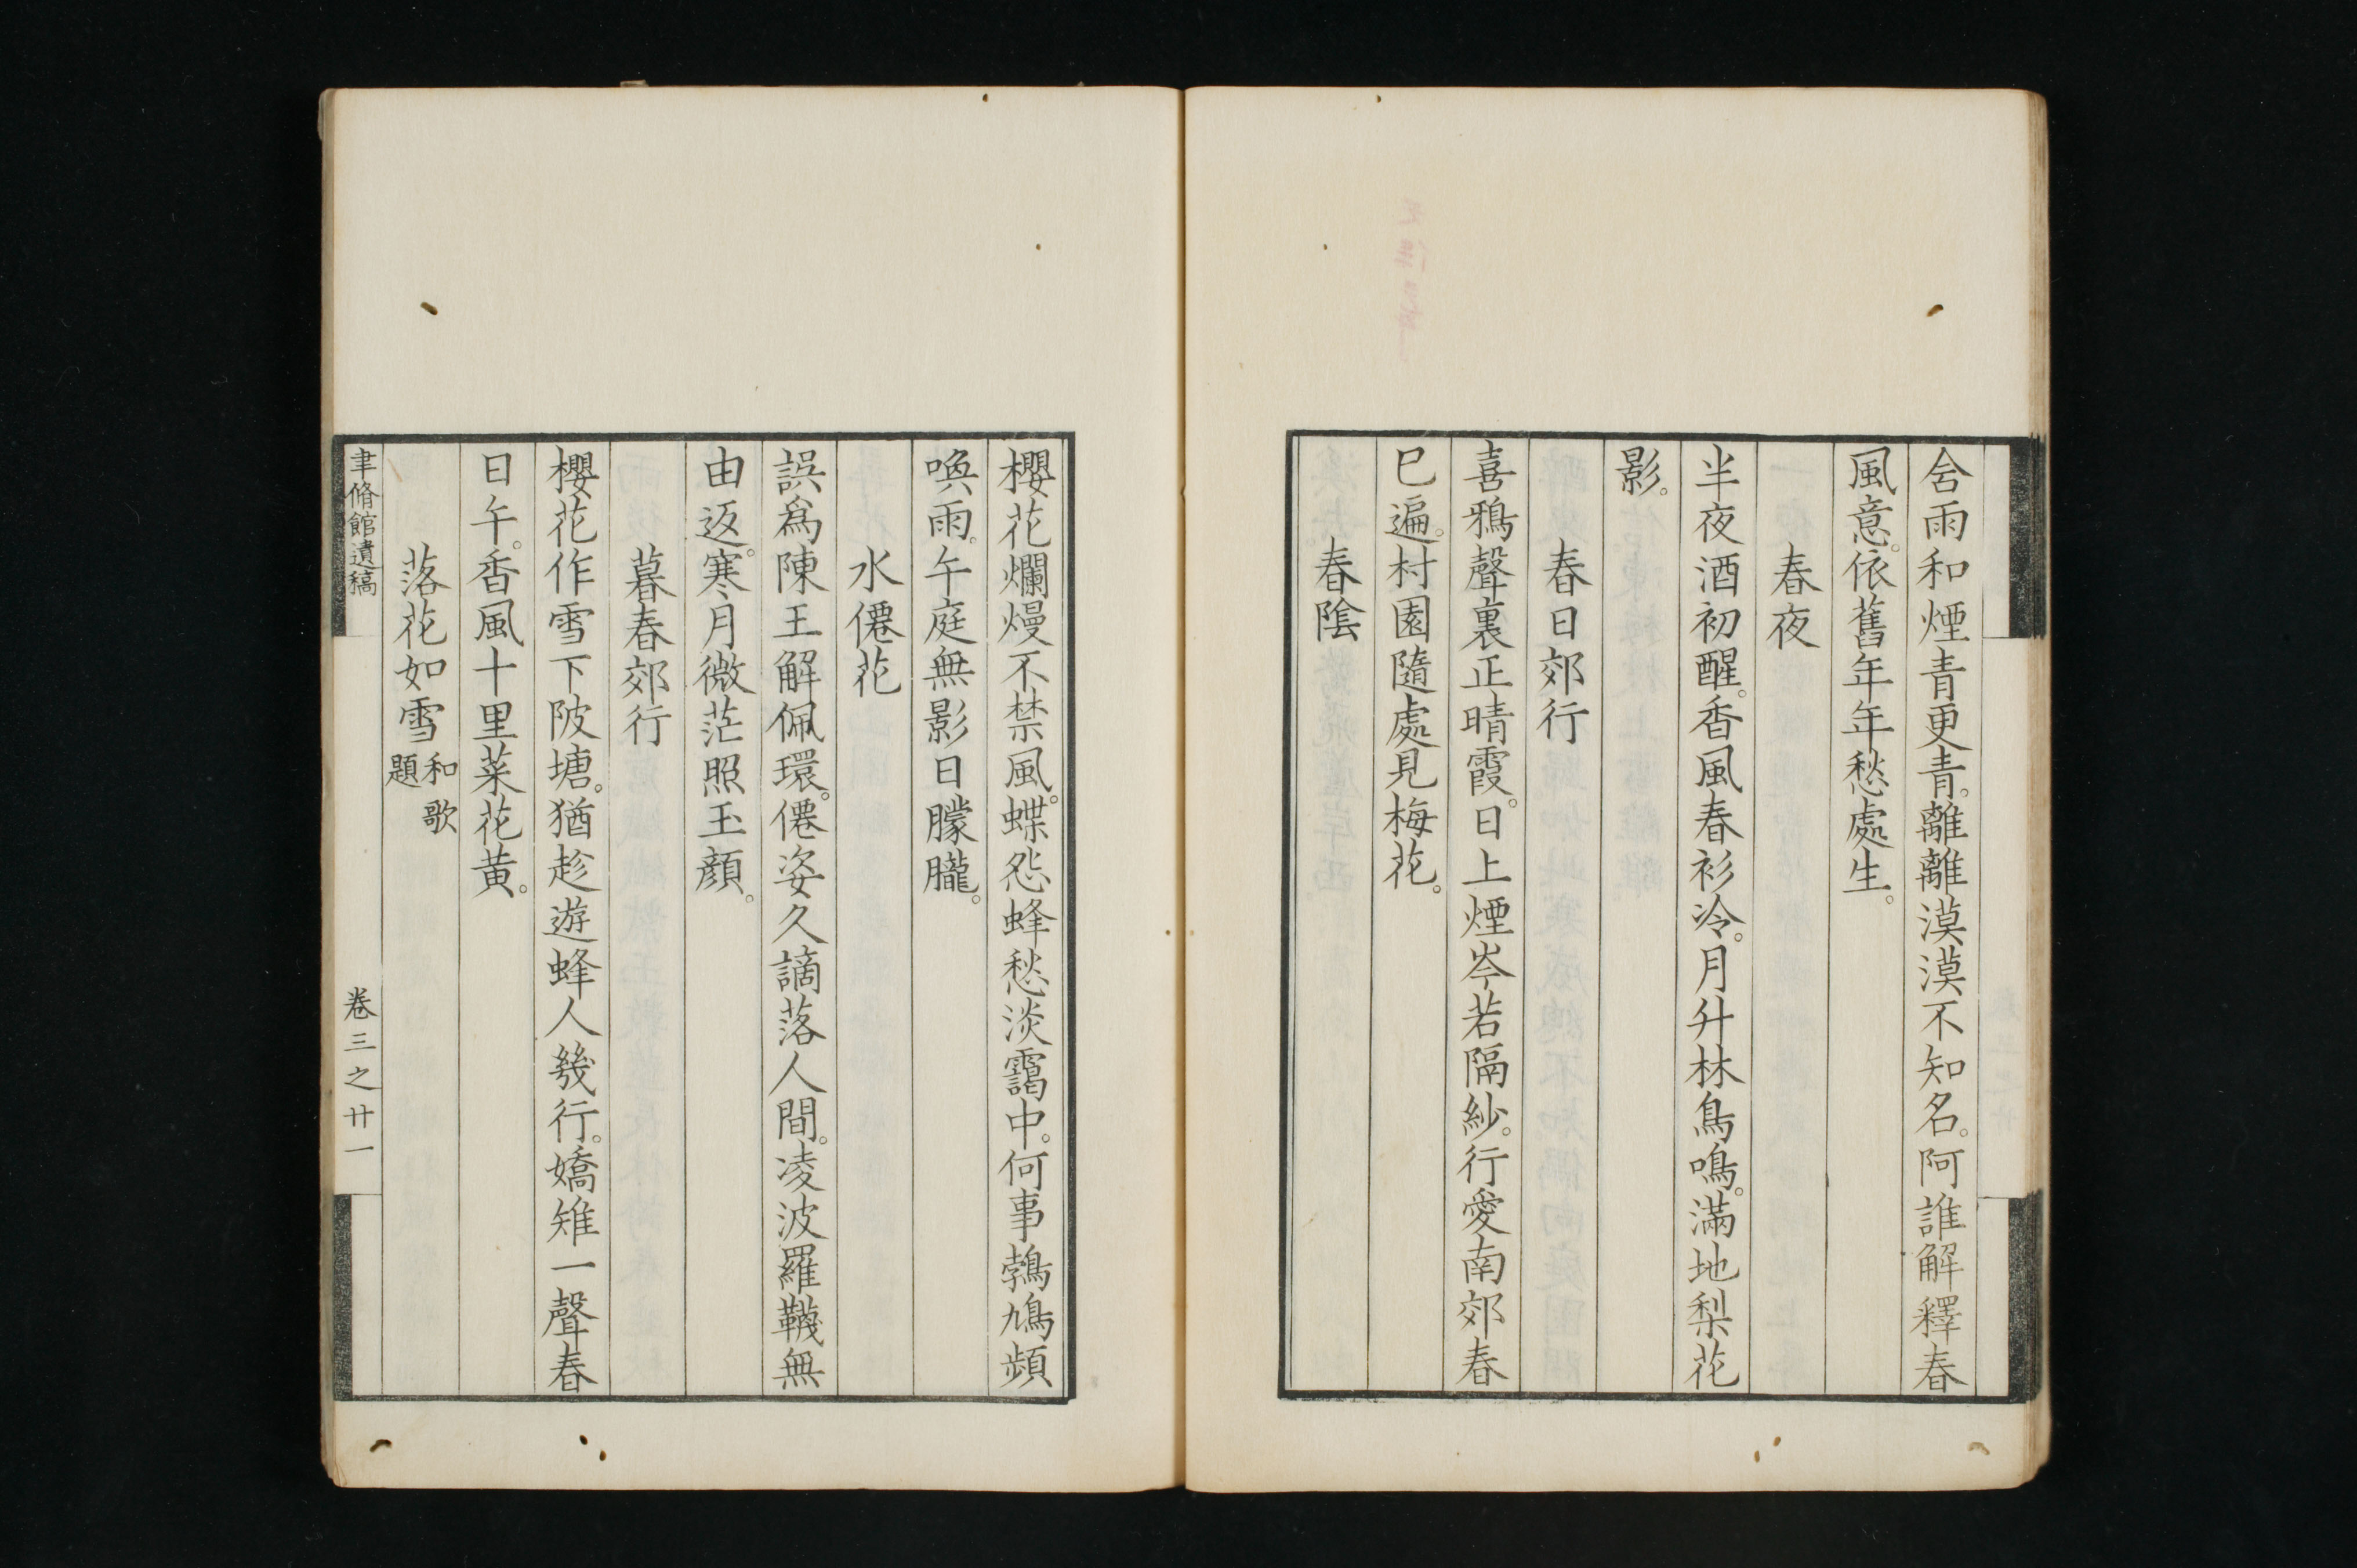 含雨和煙青更青。離離漠漠不知名。阿誰解釋春
風意。依舊年年愁處生。
春夜
半夜酒初醒。香風春衫冷。月升林鳥鳴。滿地梨花
影。
春日郊行
喜鴉聲裏正晴霞。日上煙岑若隔紗。行愛南郊春
已遍。村園隨處見梅花。
春陰
櫻花爛熳不禁風。蝶怨蜂愁淡靄中。何事鵓鳩頻
喚雨。午庭無影日朦朧。
水僊花
誤爲陳王解佩環。僊姿久謫落人間。凌波羅韈無
由返。寒月微茫照玉顏。
暮春郊行
櫻花作雪下陂塘。猶趁遊蜂人幾行。嬌雉一聲春
日午。香風十里菜花黃。
落花如雪 和歌題
聿脩館遺稿 卷三之廿一